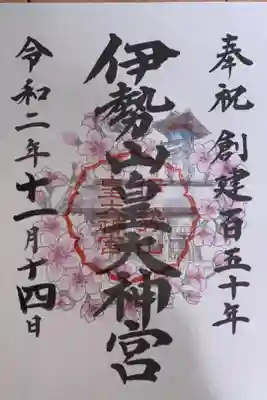 奉祝創建百五十年
伊勢山皇大神宮
令和二年十一月十四日